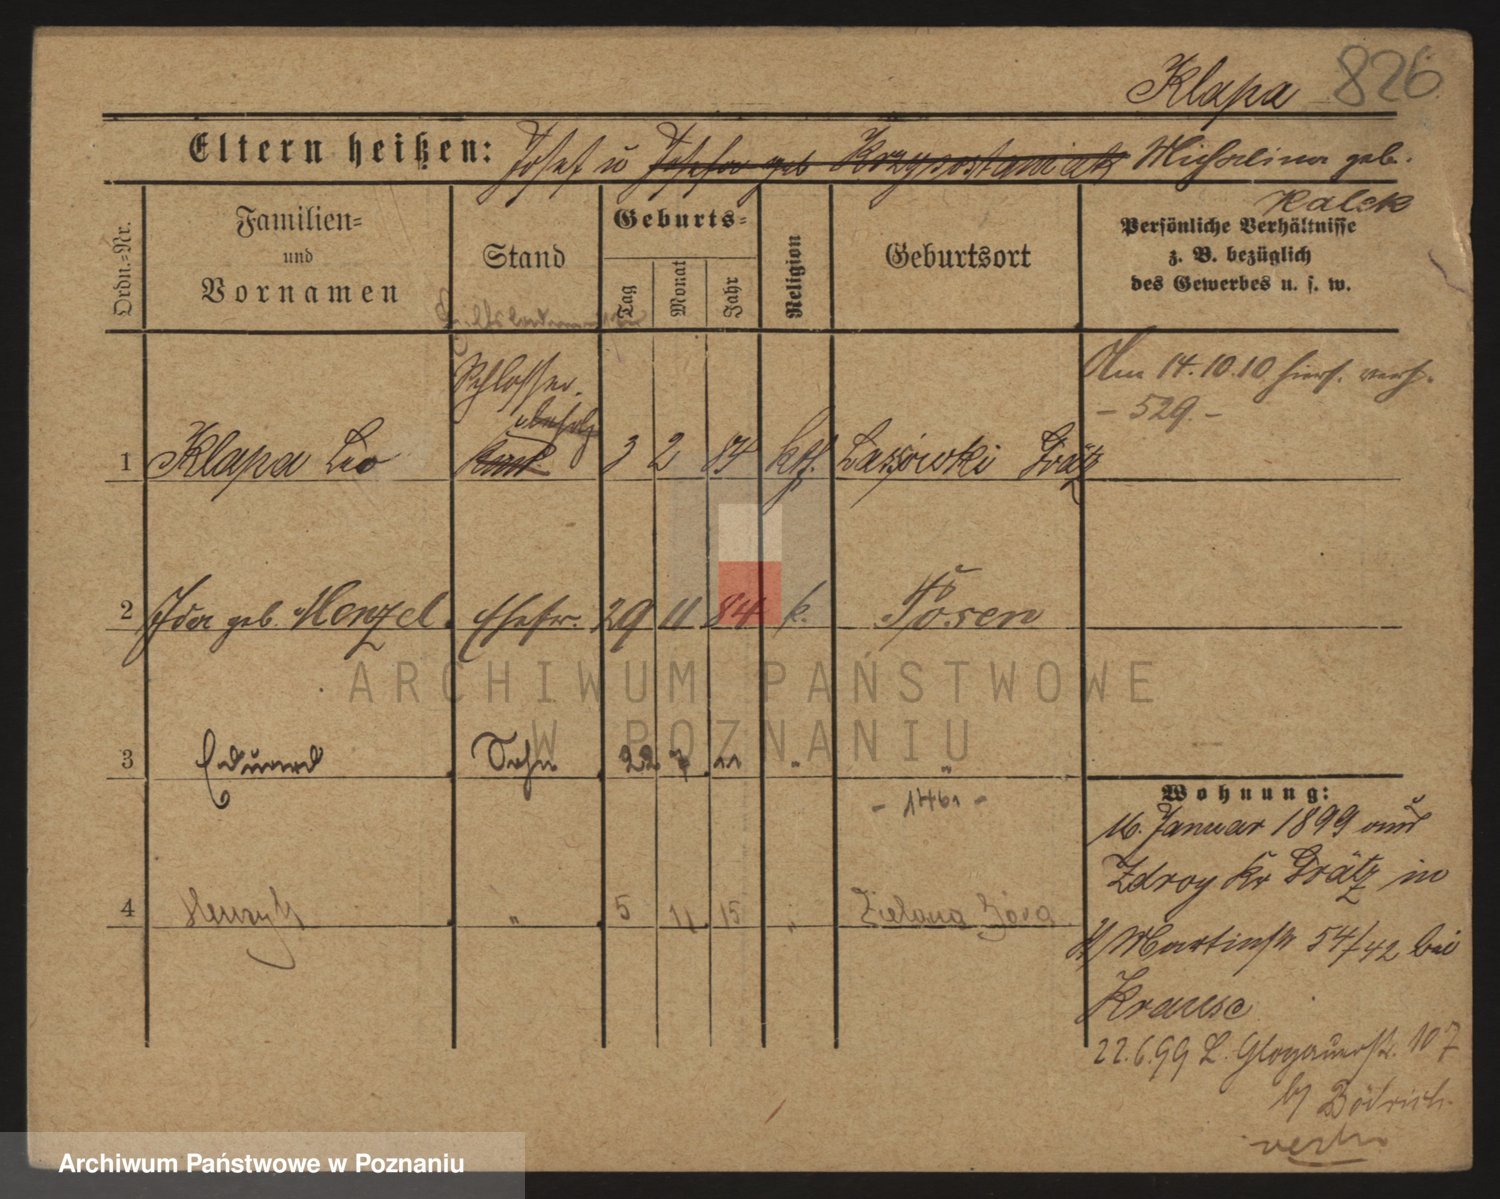 Klapa 826
Eltern heißen: Josef u Josefa geb Krzyzostaniak Michalina geb.
Ratek
Ordn.-Nr.
Familien-
und
Vornamen
Stand
Geburts-
Tag
Monat
Jahr
Religion
Geburtsort
Persönliche Verhältnisse
z. B. bezüglich
des Gewerbes u. s. w.
Schlosser
1 Klapa Leo 3 2 84 kth. Grätz
Am 14.10.10 hier verh.
- 529 -
2 Ida geb. Menzel Ehefr. 29 11 84 k. Posen
3 Eduard Sohn 22 7 11 " "
- 1461 -
4 Henryk " 5 11 15 " Zielona Góra
Wohnung:
16. Januar 1899 aus
Zdroy Kr Grätz in
St Martinstr 54/42 bei
Krause
22.6.99 L. Glogauerstr. 107
b/
verh
ARCHIWUM PAŃSTWOWE
W POZNANIU
Archiwum Państwowe w Poznaniu